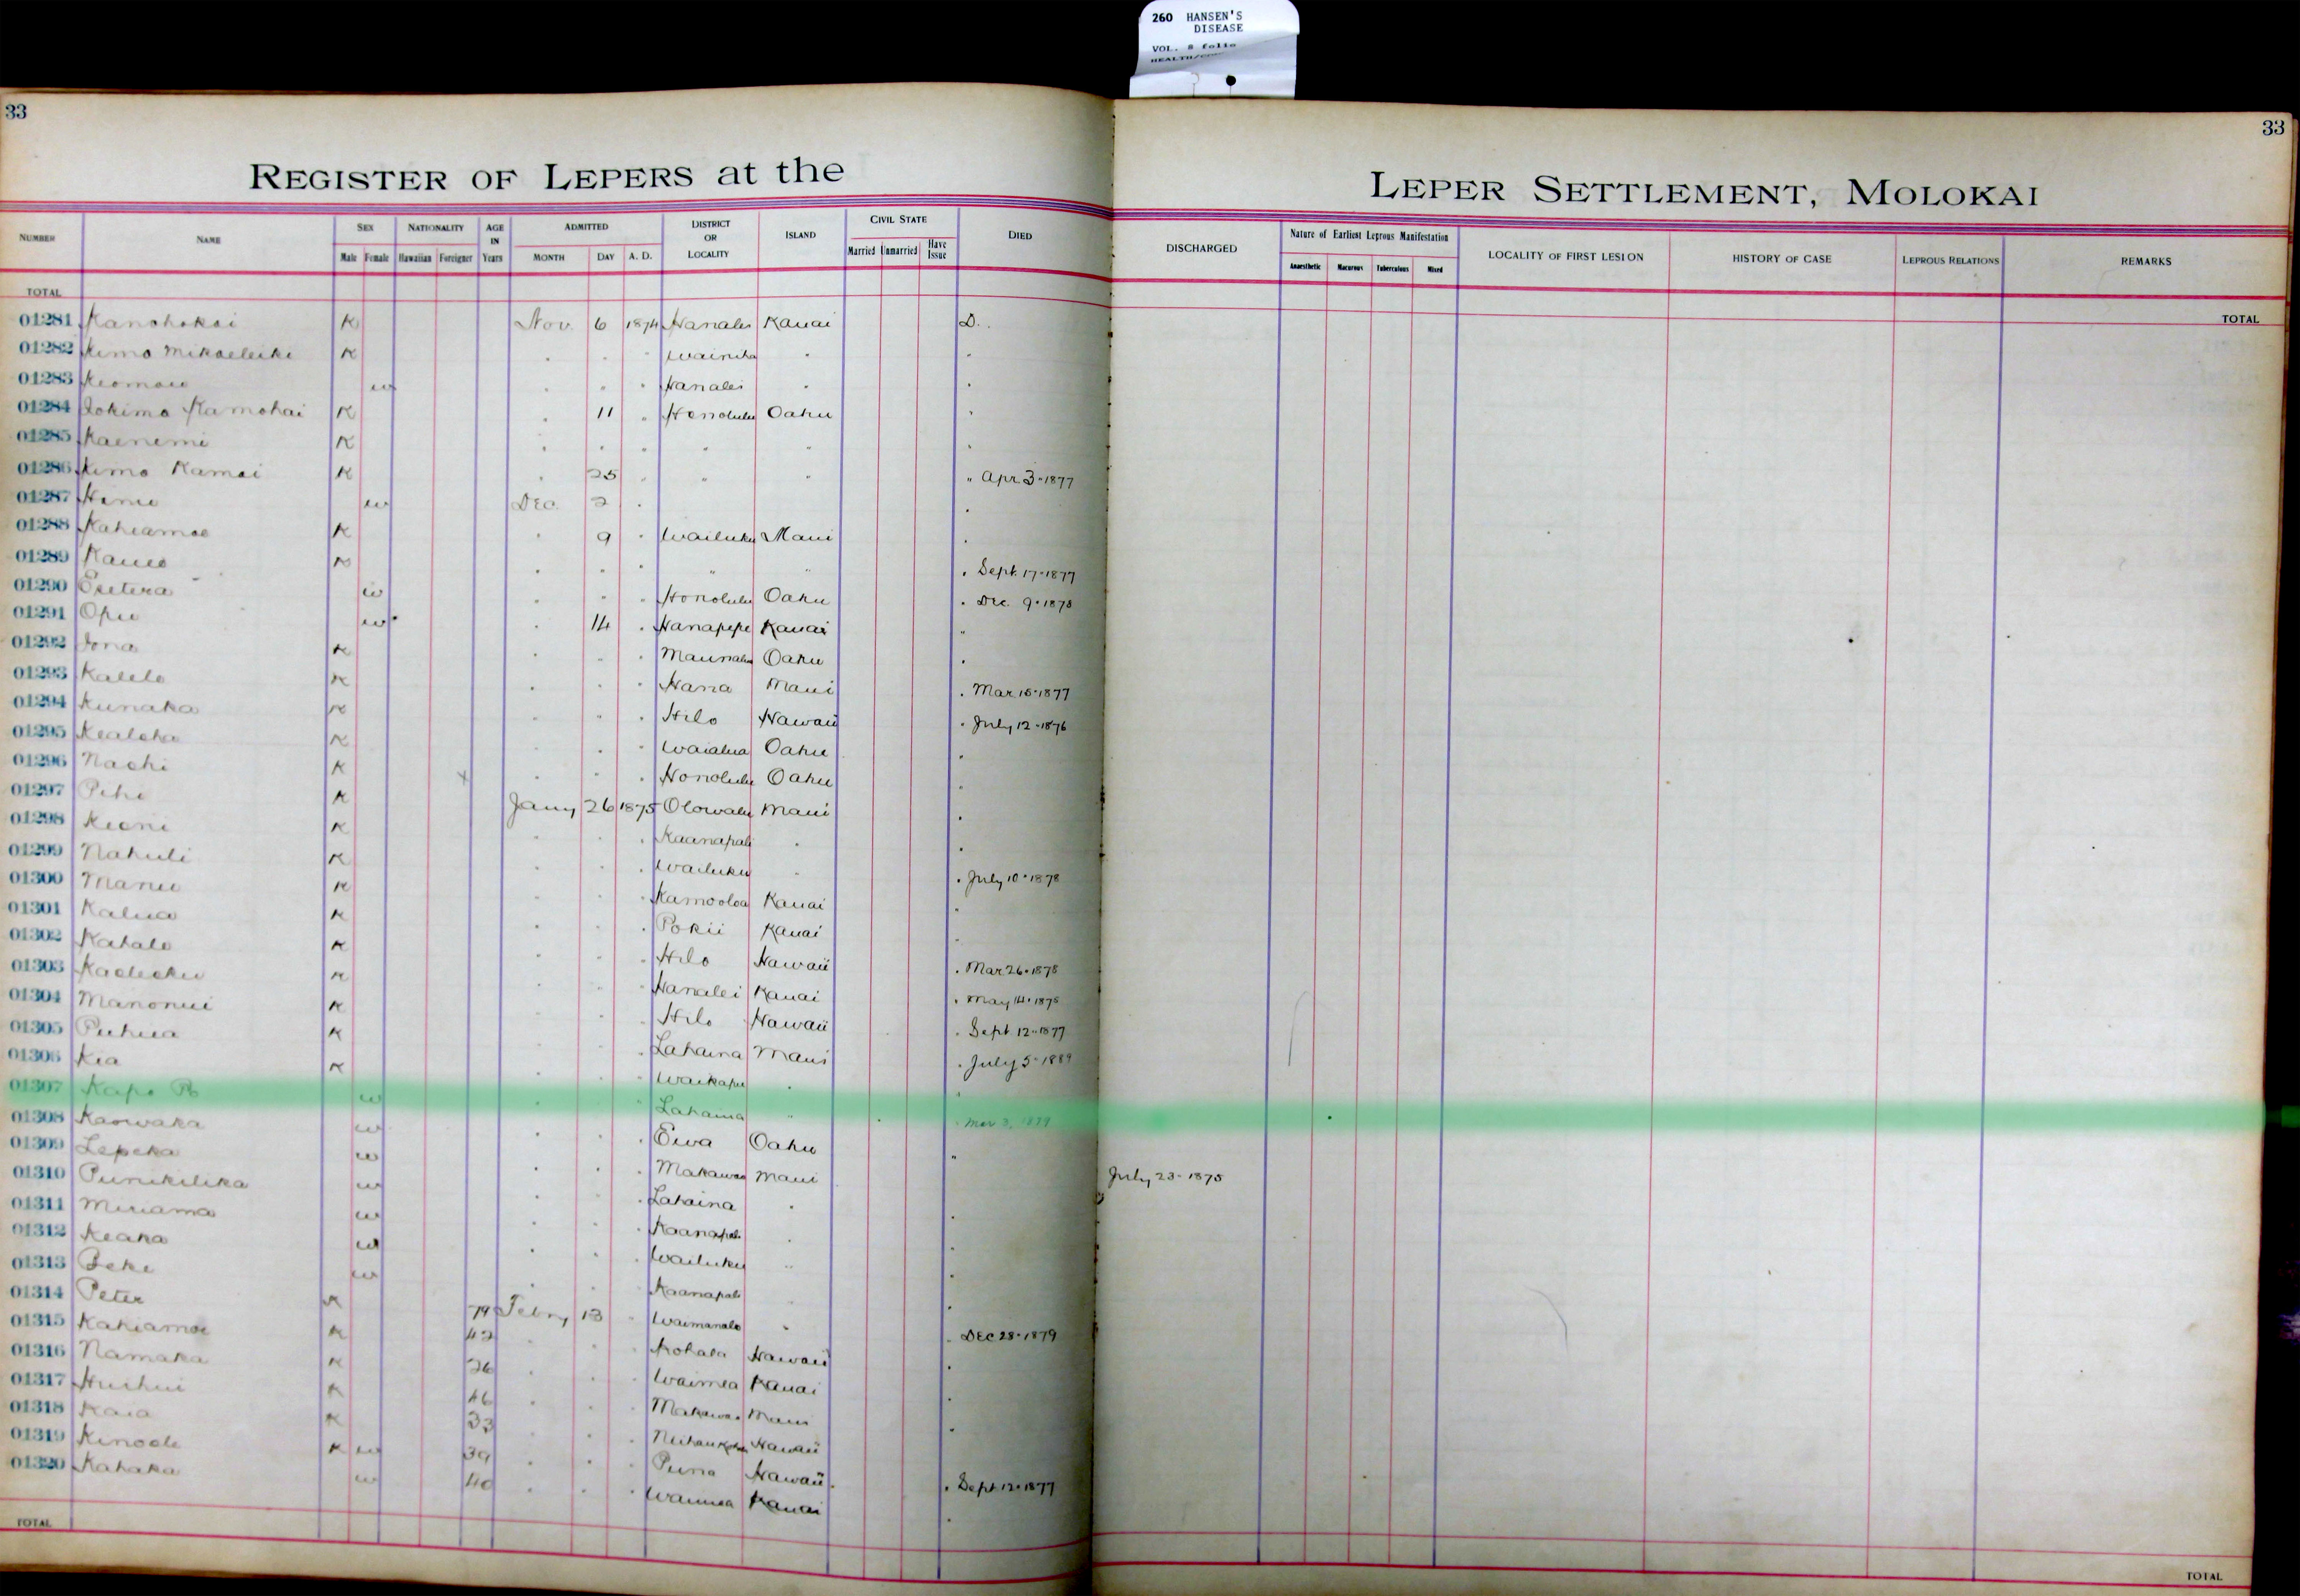 260 HANSEN'S
DISEASE
VOL. 8 folio
33
33
REGISTER OF LEPERS at the LEPER SETTLEMENT, MOLOKAI
NUMBER NAME SEX Male Female NATIONALITY Hawaiian Foreigner AGE IN Years ADMITTED MONTH DAY A. D. DISTRICT OR LOCALITY ISLAND CIVIL STATE Married Unmarried Have Issue DIED DISCHARGED Nature of Earliest Leprous Manifestation Anaesthetic Macurous Tuberculous Mixed LOCALITY OF FIRST LESION HISTORY OF CASE LEPROUS RELATIONS REMARKS
TOTAL TOTAL
01281 Kanohokai K Nov. 6 1874 Hanalei Kauai D.
01282 Kimo Mikaeleiki K " " " Wainiha " "
01283 Keomaw w " " " Hanalei " "
01284 Iokimo Kamohai K " 11 " Honolulu Oahu "
01285 Kaenemi K " " " " " "
01286 Kimo Kamai K " 25 " " " " Apr 3-1877
01287 w Dec. 2 " "
01288 Kahiamoe K " 9 " Wailuku Maui "
01289 K " " " " " " Sept. 17-1877
01290 w " " " Honolulu Oahu " Dec. 9-1878
01291 Opu w " 14 " Hanapepe Kauai "
01292 Iona K " " " Oahu "
01293 Kalelo K " " " Hana Maui " Mar 15-1877
01294 Kunaka K " " " Hilo Hawaii " July 12-1876
01295 Kealoha K " " " Waialua Oahu "
01296 Naohi K + " " " Honolulu Oahu "
01297 Pihi K Jany 26 1875 Olowalu Maui "
01298 Keoni K " " " Kaanapali " "
01299 Nahuli K " " " Wailuku " " July 10-1878
01300 Manu K " " " Kamooloa Kauai "
01301 Kalua K " " " Pokii Kauai "
01302 Kahalo K " " " Hilo Hawaii " Mar 26-1878
01303 K " " " Hanalei Kauai " May 14-1875
01304 Manonui K " " " Hilo Hawaii " Sept 12-1877
01305 Puhua K " " " Lahaina Maui " July 5-1889
01306 Kea K " " " Waikapu " "
01307 Kapo w " " " Lahaina " " Mar 3, 1879
01308 Kaowaka w " " " Ewa Oahu "
01309 Lepeka w " " " Makawao Maui July 23-1875
01310 Punikilika w " " " Lahaina " "
01311 Miriama w " " " Kaanapali " "
01312 Keaka w " " " Wailuku " "
01313 Beke w " " " Kaanapali " "
01314 Peter K 79 Febry 13 " Waimanalo " " Dec 28-1879
01315 Kahiamoe K 42 " " " Kohala Hawaii "
01316 Namaka K 26 " " " Waimea Kauai "
01317 Huihui K 46 " " " Makawao Maui "
01318 Kaia K 33 " " " Hawaii
01319 Kinoole K w 39 " " " Puna Hawaii " Sept 12-1877
01320 Kahaka w 40 " " " Waimea Kauai "
TOTAL TOTAL